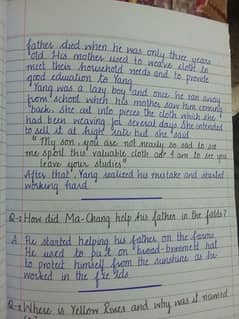 father died when he was only three years
old. His mother used to weave cloth to
meet their household needs and to provide
good education to Yang.
Yang was a lazy boy and once he ran away
from school when his mother saw him coming
back. She cut into pieces the cloth which she
had been weaving for several days she intended
to sell it at high rate but she said
"My son, you are not nearly so sad to see
me spoil this valuable cloth as I am to see you
leave your studies"
After that Yang realized his mistake and started
working hard
Q-1 How did Ma-Chang help his father in the fields?
A. He started helping his father on the farms
He used to put on broad-brimmed hat
to protect himself from the sunshine as he
worked in the fields.
Q-2 Where is Yellow Roses and why was it named